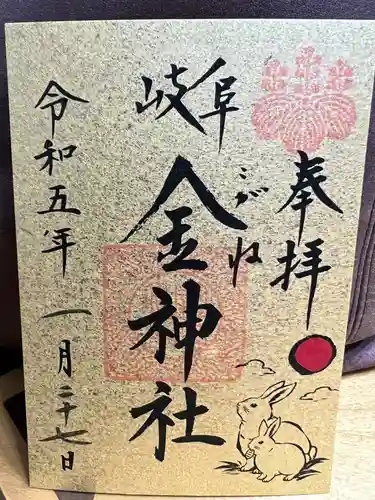 奉拝
岐阜
金神社
こがね
令和五年 一月二十七日